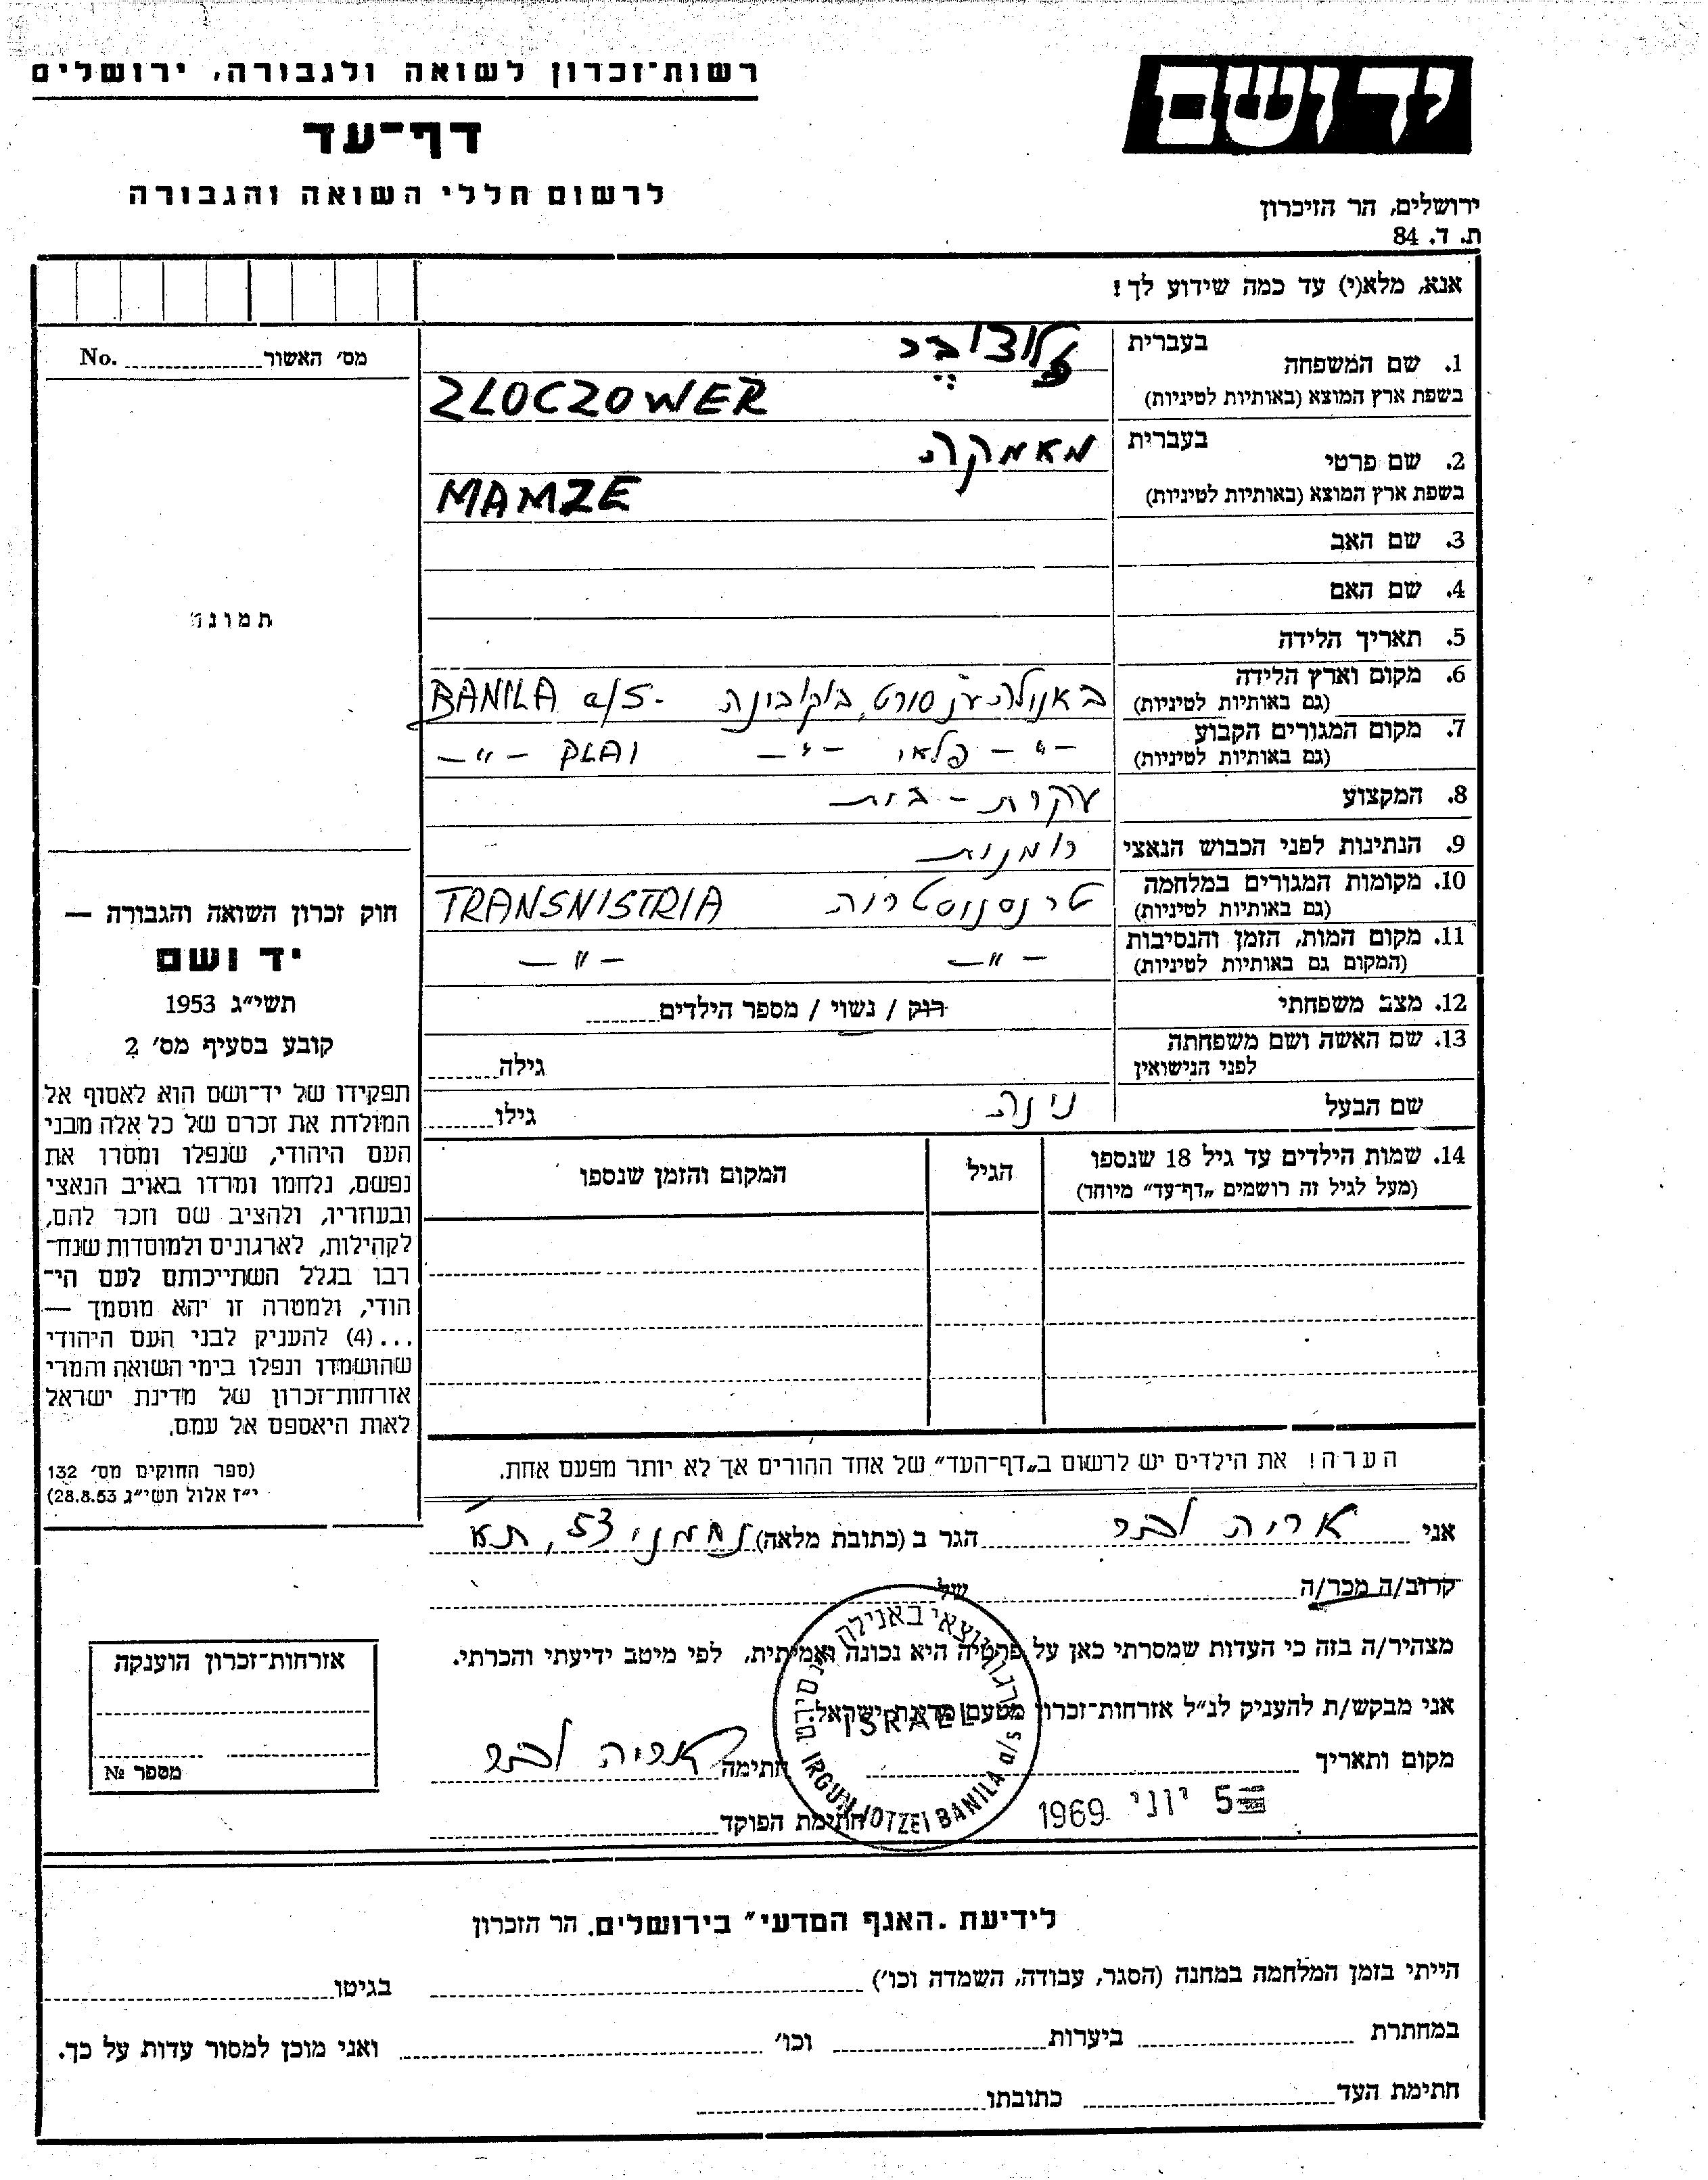 רשות־זכרון לשואה ולגבורה, ירושלים
דף־עד
לרשום חללי השואה והגבורה
יד ושם
ירושלים, הר הזיכרון
ת. ד. 84
אנא, מלא(י) עד כמה שידוע לך!
מס׳ האשור No.
1. שם המשפחה בעברית
בשפת ארץ המוצא (באותיות לטיניות) ZLOCZOWER
2. שם פרטי בעברית מאמקה
בשפת ארץ המוצא (באותיות לטיניות) MAMZE
3. שם האב
4. שם האם
תמונה
5. תאריך הלידה
6. מקום וארץ הלידה
(גם באותיות לטיניות) באנילה ע״נ סרט, בוקובינה BANILA a/S.
7. מקום המגורים הקבוע
(גם באותיות לטיניות) –״– פלאי –״– PLAI –״–
8. המקצוע עקרת-בית
9. הנתינות לפני הכבוש הנאצי רומנית
10. מקומות המגורים במלחמה
(גם באותיות לטיניות) טרנסניסטריה TRANSNISTRIA
11. מקום המות, הזמן והנסיבות
(המקום גם באותיות לטיניות) –״– –״–
12. מצב משפחתי רוק / נשוי / מספר הילדים
13. שם האשה ושם משפחתה
לפני הנישואין גילה
שם הבעל גילו
14. שמות הילדים עד גיל 18 שנספו הגיל המקום והזמן שנספו
(מעל לגיל זה רושמים „דף־עד״ מיוחד)
חוק זכרון השואה והגבורה —
יד ושם
תשי״ג 1953
קובע בסעיף מס׳ 2
תפקידו של יד־ושם הוא לאסוף אל
המולדת את זכרם של כל אלה מבני
העם היהודי, שנפלו ומסרו את
נפשם, נלחמו ומרדו באויב הנאצי
ובעוזריו, ולהציב שם וזכר להם,
לקהילות, לארגונים ולמוסדות שנח־
רבו בגלל השתייכותם לעם הי־
הודי, ולמטרה זו יהא מוסמך —
...(4) להעניק לבני העם היהודי
שהושמדו ונפלו בימי השואה והמרי
אזרחות־זכרון של מדינת ישראל
לאות היאספם אל עמם.
(ספר החוקים מס׳ 132
י״ז אלול תשי״ג 28.8.53)
הערה! את הילדים יש לרשום ב„דף־העד״ של אחד ההורים אך לא יותר מפעם אחת.
אני אריה הגר ב (כתובת מלאה) נחמני 53, ת״א
קרוב/ה מכר/ה של
מצהיר/ה בזה כי העדות שמסרתי כאן על פרטיה היא נכונה ואמיתית, לפי מיטב ידיעתי והכרתי.
אני מבקש/ת להעניק לנ״ל אזרחות־זכרון מטעם מדינת ישראל.
מקום ותאריך חתימה אריה
5 יוני 1969
חתימת הפוקד
ISRAEL
IRGUN JOTZEI BANILA a/s
אזרחות־זכרון הוענקה
מספר №
לידיעת „האגף המדעי״ בירושלים, הר הזכרון
הייתי בזמן המלחמה במחנה (הסגר, עבודה, השמדה וכו׳) בגיטו
במחתרת ביערות וכו׳ ואני מוכן למסור עדות על כך.
חתימת העד כתובתו